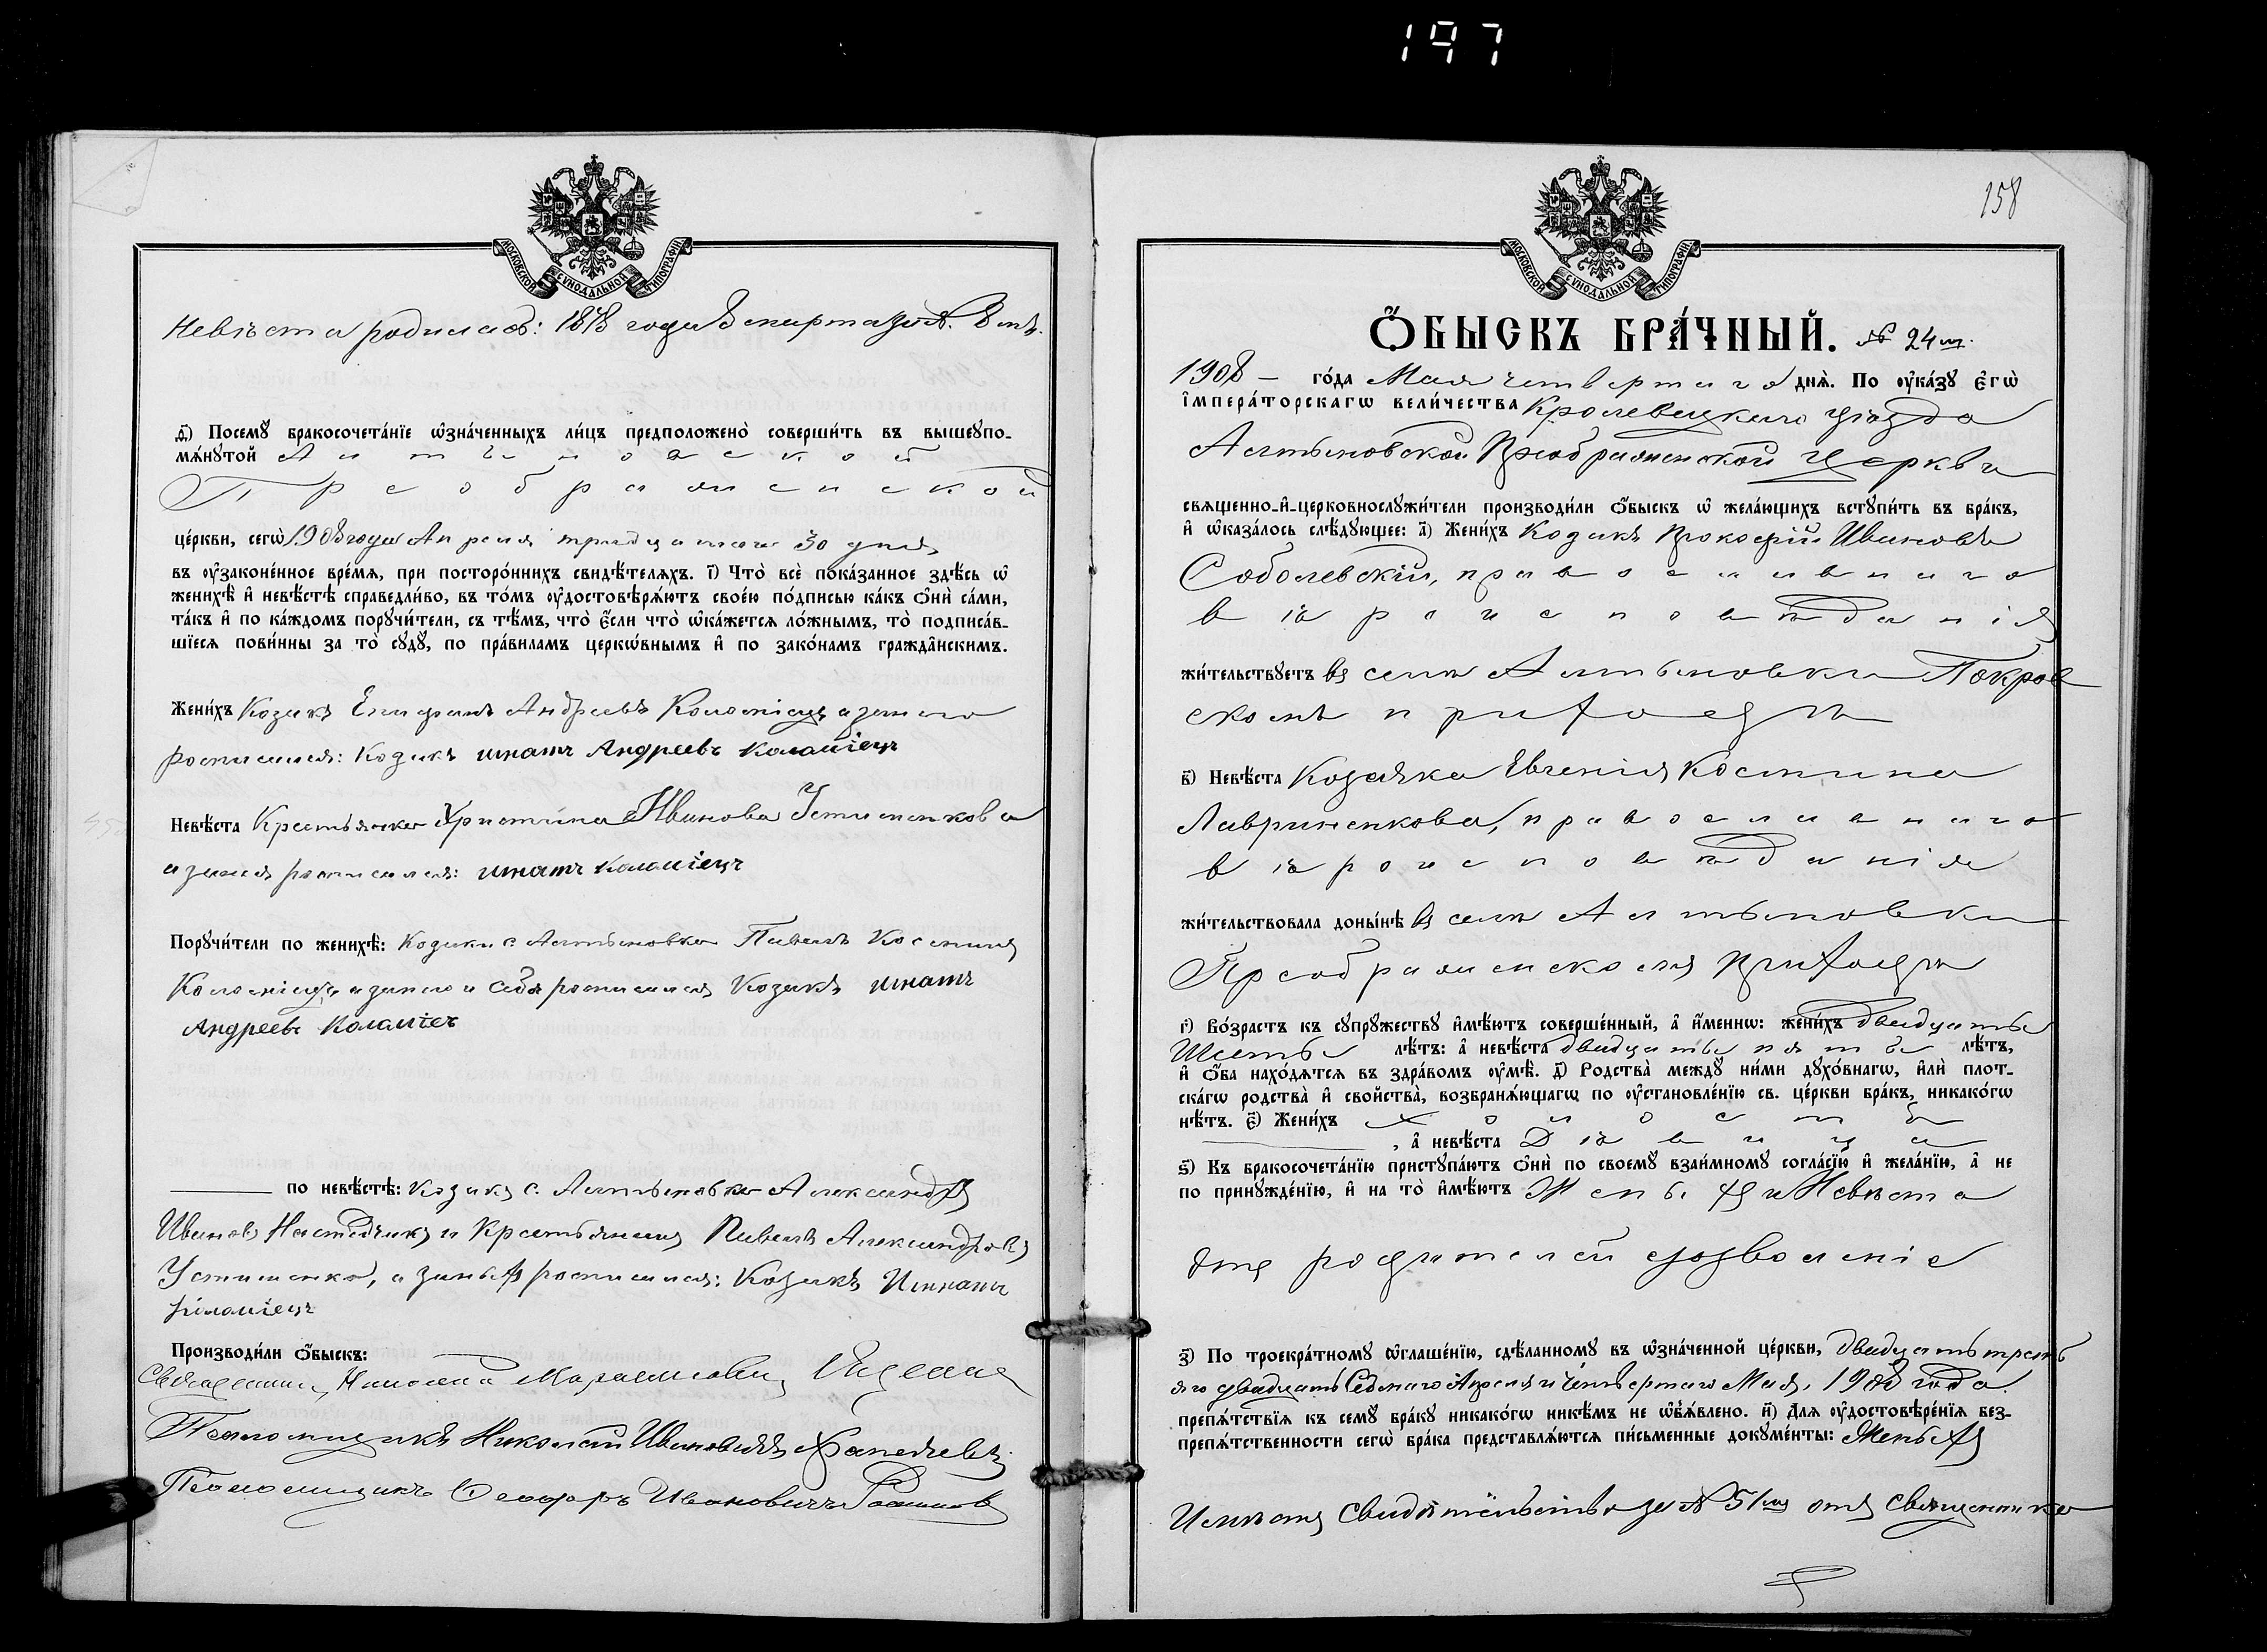 197
МОСКОВСКОЙ СѴНОДАЛЬНОЙ ТИПОГРАФІИ
Невѣста родилась: 1878 года 3 марта за № 8 мъ.
д҃) Посемꙋ̀ бракосочета́нїе ѡ҆зна́ченныхъ ли́цъ предположено̀ соверши́ть въ вышеꙋпо-
мѧ́нꙋтой Алтыновской
Преображенской
це́ркви, сегѡ̀ 1908 года Апреля тридцатаго 30 дня,
въ ᲂу҆законе́нное вре́мѧ, при посторо́ннихъ свидѣ́телѧхъ. і҃) Что̀ всѐ пока́занное здѣ́сь ѡ҆
женихѣ̀ и҆ невѣ́стѣ справедли́во, въ то́мъ ᲂу҆достовѣрѧ́ютъ свое́ю по́дписью ка́къ ѻ҆нѝ са́ми,
та́къ и҆ по ка́ждомъ порꙋчи́тели, съ тѣ́мъ, что̀ є҆́сли что̀ ѡ҆ка́жетсѧ ло́жнымъ, то̀ подписа́в-
шїесѧ пови́нны за то̀ сꙋдꙋ̀, по пра́виламъ церкѡ́внымъ и҆ по зако́намъ гражда́нскимъ.
Жени́хъ Козакъ Епифанъ Андреевъ Коломіецъ а за него
росписался: Козакъ игнатъ Андреевъ Коламіецъ
Невѣ́ста Крестьянка Христина Иванова Устименкова
а за нея росписался: игнатъ Коламіецъ
Порꙋчи́тели по женихѣ̀: Козаки с. Алтыновки Павелъ Косминъ
Коломіецъ, а за него и себя росписался Козакъ игнатъ
Андреевъ Коламіец
по невѣ́стѣ: Козакъ с. Алтыновки Александръ
Ивановъ и Крестьянинъ Павелъ Александровъ
Устименко, а за нихъ росписался: Козакъ Игнатъ
Коламіецъ
Производи́ли ѻ҆́быскъ:
Священникъ Николай
Псаломщикъ Николай Ивановичъ
Псаломщикъ Ѳеодоръ Ивановичъ
МОСКОВСКОЙ СѴНОДАЛЬНОЙ ТИПОГРАФІИ
158
Ѻ҆́БЫСКЪ БРА́ЧНЫЙ. № 24й.
1908 — го́да Мая четвертаго днѧ̀. По ᲂу҆ка́зꙋ є҆гѡ̀
і҆мпера́торскагѡ вели́чества Кролевецкаго уѣзда
Алтыновской Преображенской Церкви
свѧщенно-и҆-церковнослꙋжи́тели производи́ли ѻ҆́быскъ ѡ҆ жела́ющихъ встꙋпи́ть въ бра́къ,
и҆ ѡ҆каза́лось слѣ́дꙋющее: а҃) Жени́хъ Козакъ Прокофій Ивановъ
Соболевскій, православнаго
вѣроисповѣданія
жи́тельствꙋетъ въ селѣ Алтыновки Покров
скомъ приходѣ
в҃) Невѣ́ста Козачка Евгенія Космина
Лавриненкова, православнаго
вѣроисповѣданія
жи́тельствовала доны́нѣ въ селѣ Алтыновки
Преображенскомъ приходѣ
г҃) Во́зрастъ къ сꙋпрꙋ́жествꙋ и҆мѣ́ютъ соверше́нный, а҆ и҆́меннѡ: жени́хъ двадцать
шесть лѣ́тъ: а҆ невѣ́ста двадцать пять лѣ́тъ,
и҆ ѻ҆́ба нахо́дѧтсѧ въ здра́вомъ ᲂу҆мѣ̀. д҃) Родства̀ междꙋ̀ ни́ми дꙋхо́внагѡ, и҆лѝ плот-
ска́гѡ родства̀ и҆ сво́йства̀, возбранѧ́ющагѡ по ᲂу҆становле́нїю св. це́ркви бра́къ, никако́гѡ
нѣ́тъ. є҃) Жени́хъ холостъ
, а҆ невѣ́ста Дѣвица
ѕ҃) Къ бракосочета́нїю пристꙋпа́ютъ ѻ҆нѝ по своемꙋ̀ взаи́мномꙋ согла́сїю и҆ жела́нїю, а҆ не
по принꙋжде́нїю, и҆ на то̀ и҆мѣ́ютъ Женихъ и Невѣста
отъ родителей дозволеніе
з҃) По троекра́тномꙋ ѡ҆глаше́нїю, сдѣ́ланномꙋ въ ѡ҆зна́ченной це́ркви, двадцать треть
яго двадцать Седмаго Апреля и четвертаго Мая, 1908 года
препѧ́тствїѧ къ семꙋ̀ бра́кꙋ никако́гѡ никѣ́мъ не ѡ҆б̾ѧ́влено. и҃) Длѧ ᲂу҆достовѣре́нїѧ без-
препѧ́тственности сегѡ̀ бра́ка представлѧ́ютсѧ пи́сьменные докꙋме́нты: Женихъ
Имѣетъ Свидѣтельство за № 51мъ отъ Священника